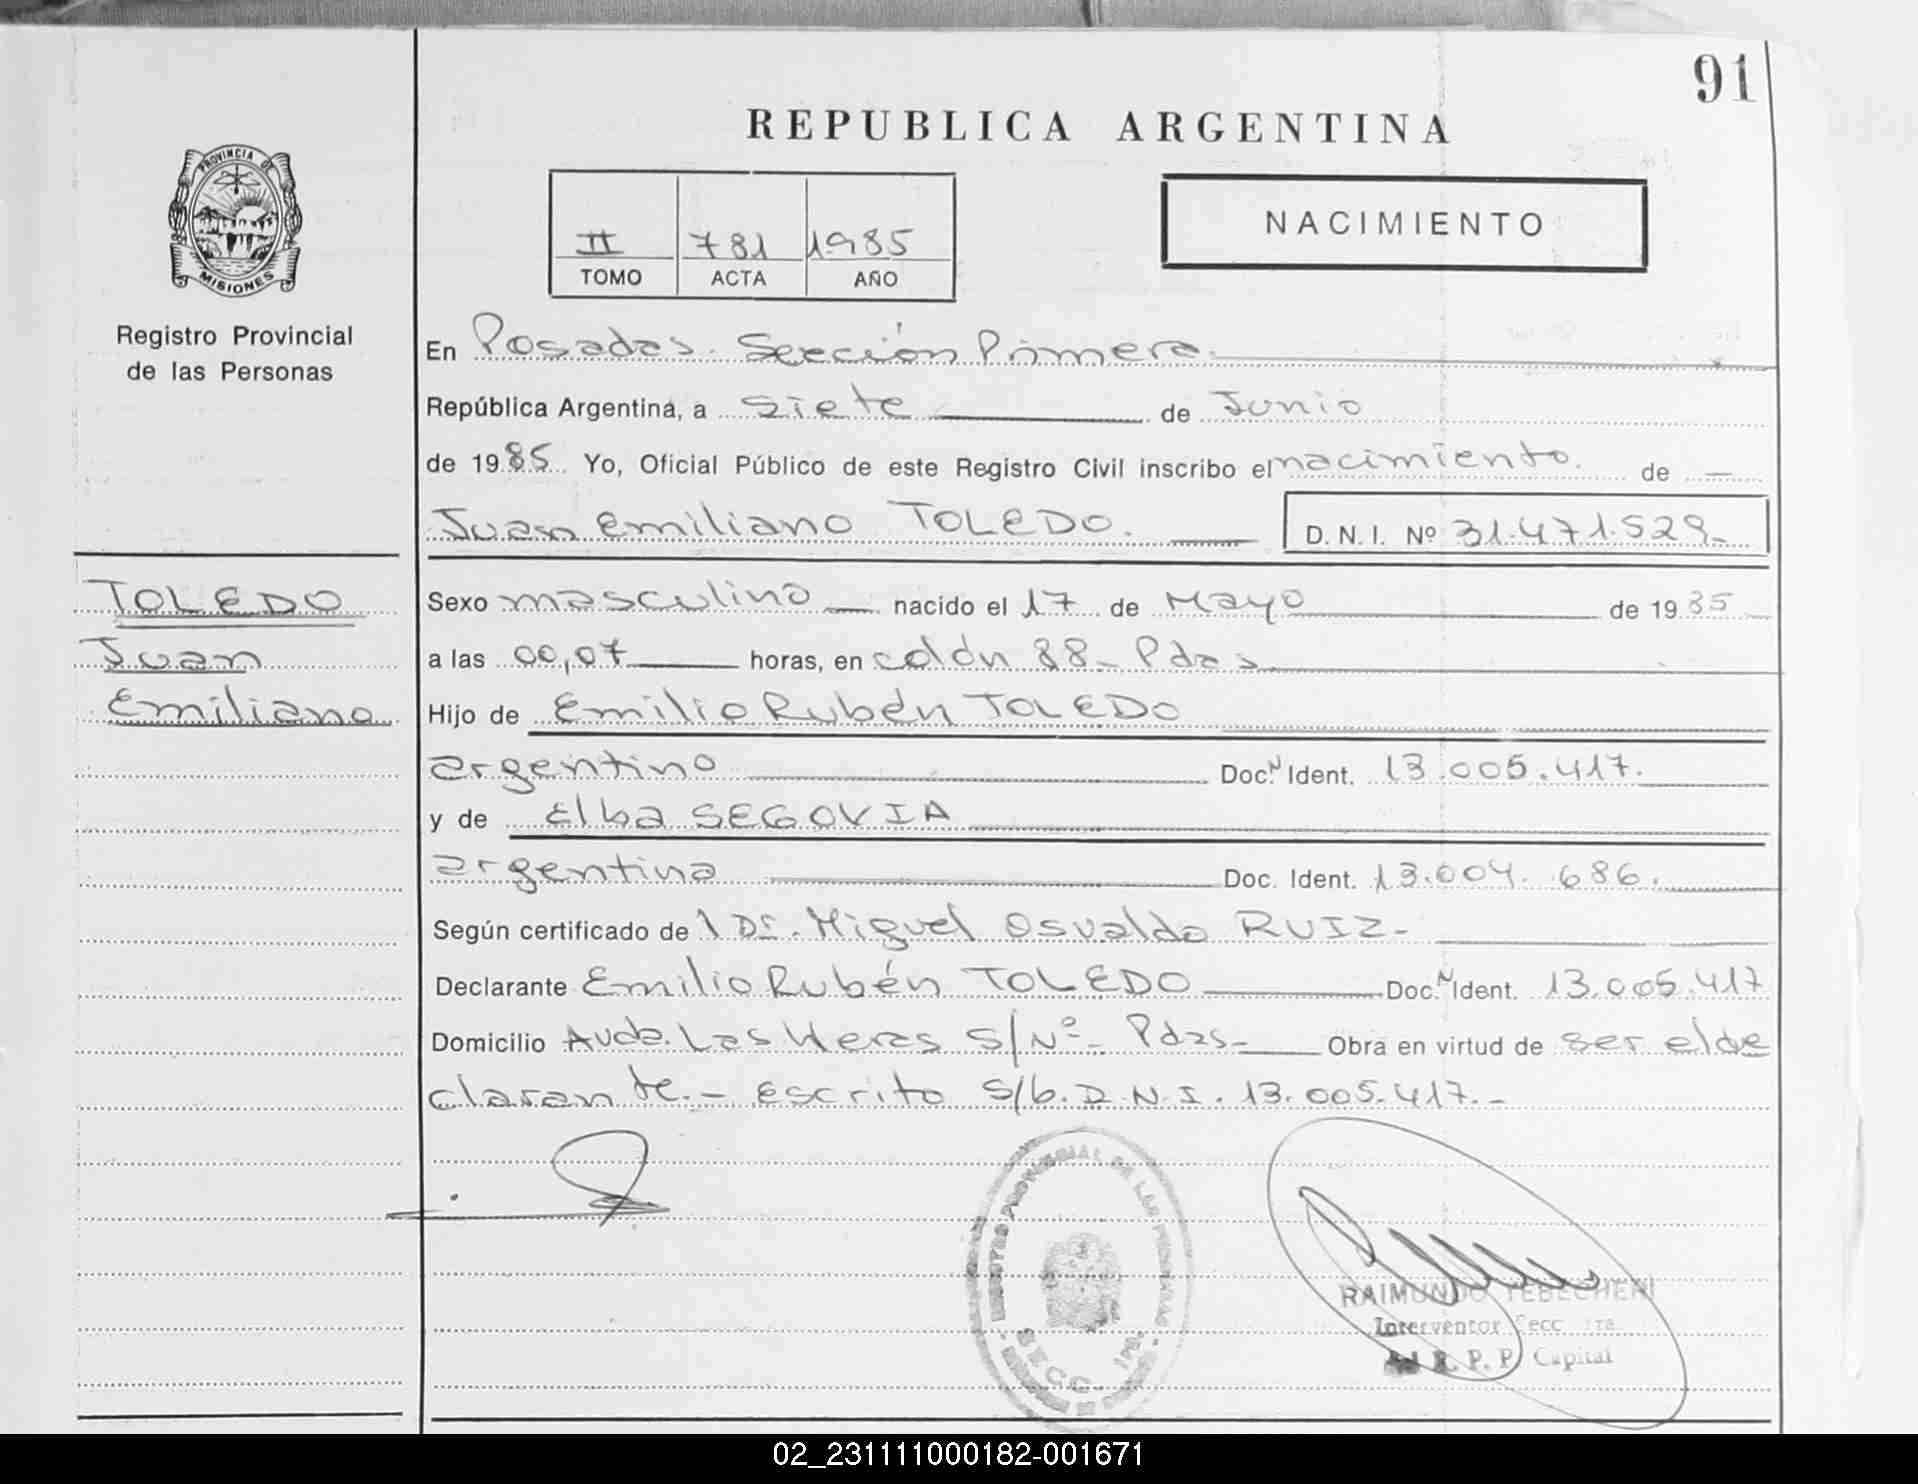 91
REPUBLICA ARGENTINA
PROVINCIA DE
MISIONES
Registro Provincial
de las Personas
II 781 1985
TOMO ACTA AÑO
NACIMIENTO
En Posadas. Sección Primera.
República Argentina, a siete de Junio
de 1985 Yo, Oficial Público de este Registro Civil inscribo el nacimiento. de —
Juan Emiliano TOLEDO. D. N. I. Nº 31.471.529-
TOLEDO
Juan
Emiliano
Sexo masculino nacido el 17 de Mayo de 1985
a las 00,07 horas, en colón 88- Pdas
Hijo de Emilio Rubén TOLEDO
argentino Doc.N Ident. 13.005.417.
y de Elba SEGOVIA
argentina Doc. Ident. 13.004.686.
Según certificado de l Dr. Miguel Osvaldo RUIZ-
Declarante Emilio Rubén TOLEDO Doc.N Ident. 13.005.417
Domicilio Avda. Las Heras S/Nº- Pdas- Obra en virtud de ser el de
clarante.- escrito S/b. D.N.I. 13.005.417.-
PROVINCIAL DE LAS PERSONAS
SECC. 1ra.
RAIMUNDO YEBECHERI
Interventor Secc 1ra
R. P. P. Capital
02_231111000182-001671